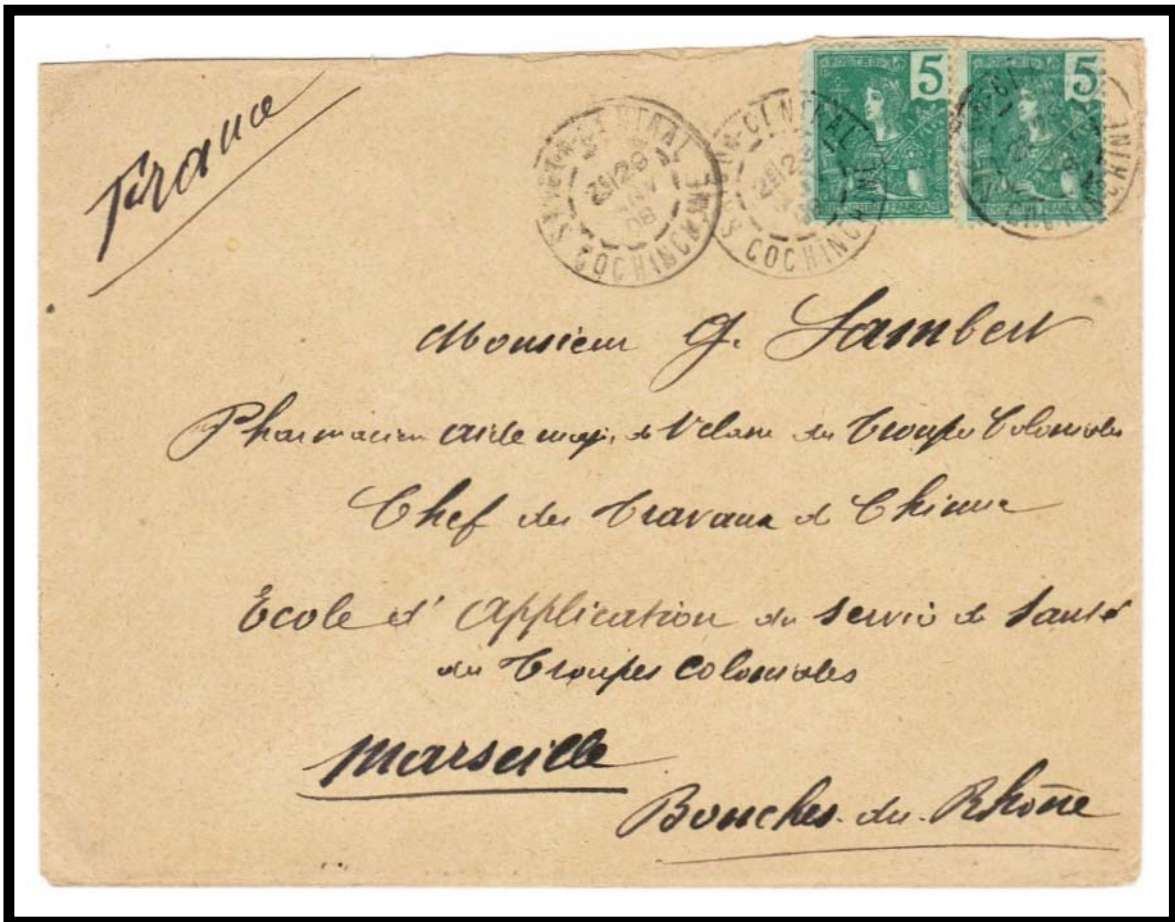 France
SAIGON-CENTRAL
28 JANV 08
COCHINCHINE
SAIGON-CENTRAL
COCHINCHINE
POSTES
5
INDOCHINE FRANÇAISE
5
INDOCHINE FRANÇAISE
Monsieur G. Lambert
Pharmacien aide major de 1e classe des Troupes Coloniales
Chef des Travaux de Chimie
Ecole d'Application du Service de Santé
des Troupes Coloniales
Marseille
Bouches-du-Rhône